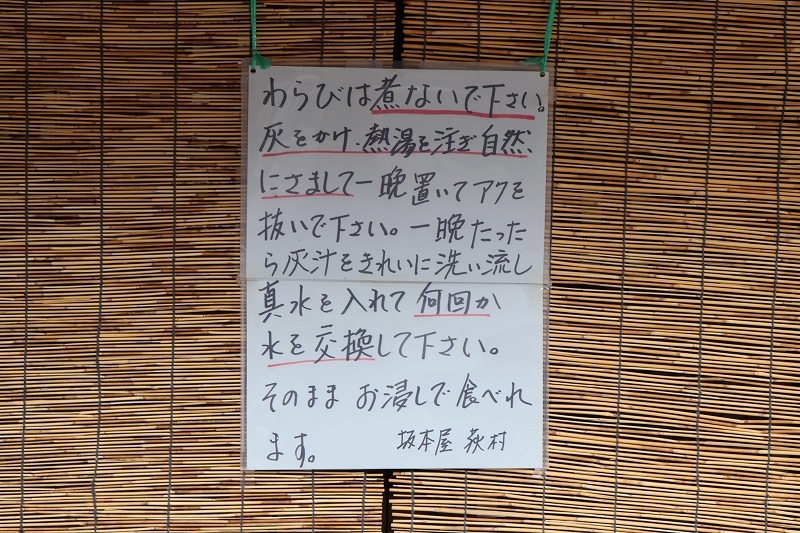 わらびは煮ないで下さい。
灰をかけ、熱湯を注ぎ自然
にさまして一晩置いてアクを
抜いで下さい。一晩たった
ら灰汁をきれいに洗い流し
真水を入れて何回か
水を交換して下さい。
そのまま お浸しで食べれ
ます。 坂本屋 荻村